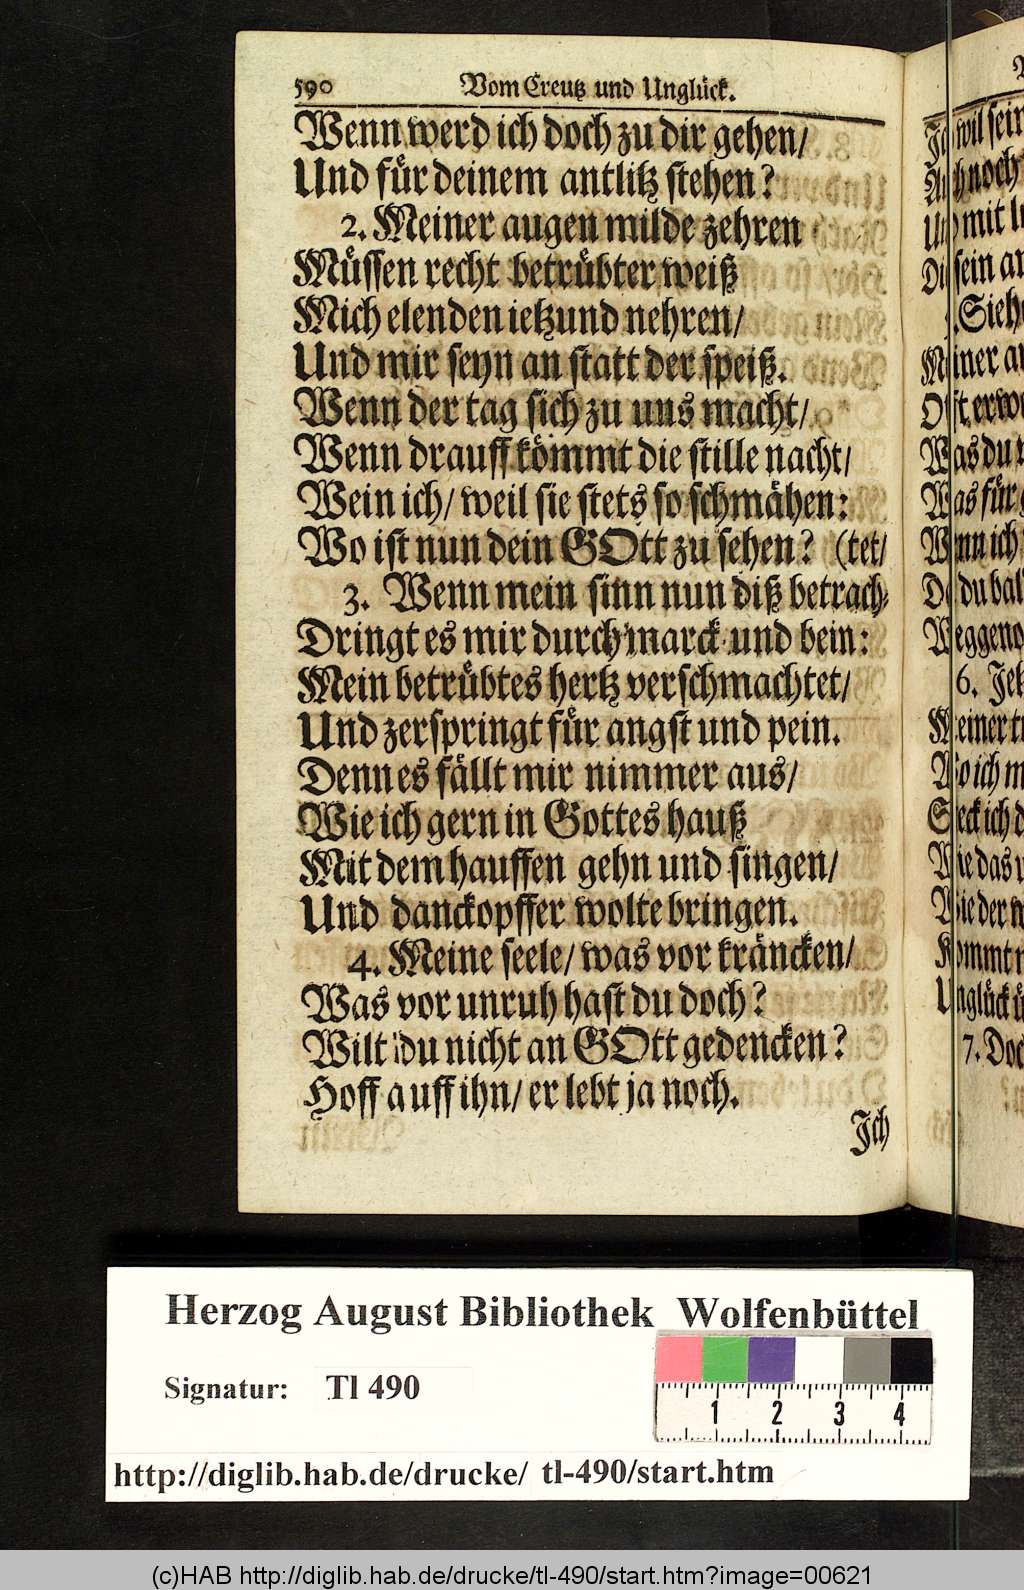 590 Vom Creutz und Unglück.
Wenn werd ich doch zu dir gehen/
Und für deinem antlitz stehen?
2. Meiner augen milde zehren
Müssen recht betrübter weiß
Mich elenden ietzund nehren/
Und mir seyn an statt der speiß.
Wenn der tag sich zu uns macht/
Wenn drauff kömmt die stille nacht/
Wein ich/ weil sie stets so schmähen:
Wo ist nun dein GOtt zu sehen? (tet/
3. Wenn mein sinn nun diß betrach-
Dringt es mir durch marck und bein:
Mein betrübtes hertz verschmachtet/
Und zerspringt für angst und pein.
Denn es fällt mir nimmer aus/
Wie ich gern in Gottes hauß
Mit dem hauffen gehn und singen/
Und danckopffer wolte bringen.
4. Meine seele/ was vor kräncken/
Was vor unruh hast du doch?
Wilt du nicht an GOtt gedencken?
Hoff auff ihn/ er lebt ja noch.
Ich
Herzog August Bibliothek Wolfenbüttel
Signatur: Tl 490
1 2 3 4
http://diglib.hab.de/drucke/ tl-490/start.htm
(c)HAB http://diglib.hab.de/drucke/tl-490/start.htm?image=00621